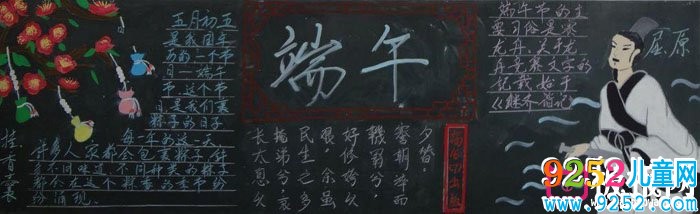 五月初五
是我国
历的一个节
日—端午
节,这个节
日是我们裹
粽子的日子
每年的这一天
许多人家都会包裹粽子,许
多不同味道、不同形状的粽子
都会在这个飘香的节
纷涌现。
挂香囊
端午
长太息以
掩涕兮哀
民生多
艰,余虽
好修姱以
鞿羁
謇朝谇而
夕替
端午节的主
要习俗是赛
龙舟,关于龙
舟竞赛文字的
记载始于
《继齐谐记
屈原
9252儿童网
www.9252.com